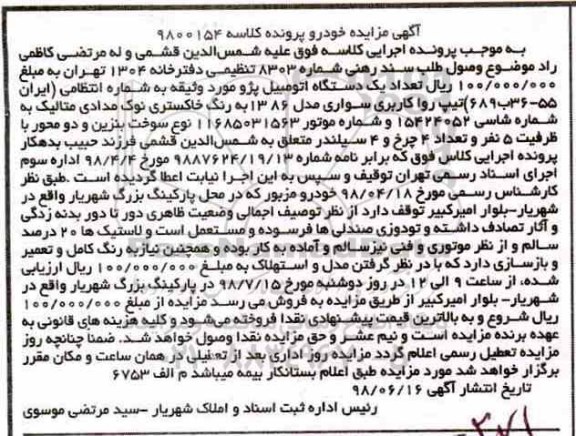 آگهی مزایده خودرو پرونده کلاسه ۹۸۰۰۱۵۴
به موجب پرونده اجرایی کلاسه فوق علیه شمس‌الدین قشمی و له مرتضی کاظمی
راد موضوع وصول طلب سند رهنی شماره ۸۳۰۳ تنظیمی دفترخانه ۱۳۰۴ تهران به مبلغ
۱۰۰/۰۰۰/۰۰۰ ریال تعداد یک دستگاه اتومبیل پژو مورد وثیقه به شماره انتظامی (ایران
۵۵-۳۶ب۶۸۹) تیپ روا کاربری سواری مدل ۱۳۸۶ به رنگ خاکستری نوک مدادی متالیک به
شماره شاسی ۱۵۴۲۴۰۵۲ و شماره موتور ۱۱۶۸۵۰۳۱۵۶۳ نوع سوخت بنزین و دو محور با
ظرفیت ۵ نفر و تعداد ۴ چرخ و ۴ سیلندر متعلق به شمس‌الدین قشمی فرزند حبیب بدهکار
پرونده اجرایی کلاس فوق که برابر نامه شماره ۹۸۸۷۶۲۴/۱۹/۱۳ مورخ ۹۸/۴/۴ اداره سوم
اجرای اسناد رسمی تهران توقیف و سپس به این اجرا نیابت اعطا گردیده است .طبق نظر
کارشناس رسمی مورخ ۹۸/۰۴/۱۸ خودرو مزبور که در محل پارکینگ بزرگ شهریار واقع در
شهریار-بلوار امیرکبیر توقف دارد از نظر توصیف اجمالی وضعیت ظاهری دور تا دور بدنه زدگی
و آثار تصادف داشته و تودوزی صندلی ها فرسوده و مستعمل است و لاستیک ها ۲۰ درصد
سالم و از نظر موتوری و فنی نیز سالم و آماده به کار بوده و همچنین نیاز به رنگ کامل و تعمیر
و بازسازی دارد که با در نظر گرفتن مدل و استهلاک به مبلغ ۱۰۰/۰۰۰/۰۰۰ ریال ارزیابی
شده، از ساعت ۹ الی ۱۲ در روز دوشنبه مورخ ۹۸/۷/۱۵ در پارکینگ بزرگ شهریار واقع در
شهریار- بلوار امیرکبیر از طریق مزایده به فروش می رسد مزایده از مبلغ ۱۰۰/۰۰۰/۰۰۰
ریال شروع و به بالاترین قیمت پیشنهادی نقدا فروخته می‌شود و کلیه هزینه های قانونی به
عهده برنده مزایده است و نیم عشر و حق مزایده نقدا وصول خواهد شد. ضمنا چنانچه روز
مزایده تعطیل رسمی اعلام گردد مزایده روز اداری بعد از تعطیلی در همان ساعت و مکان مقرر
برگزار خواهد شد مورد مزایده طبق اعلام بستانکار بیمه میباشد م الف ۶۷۵۳
تاریخ انتشار آگهی ۹۸/۰۶/۱۶
رئیس اداره ثبت اسناد و املاک شهریار -سید مرتضی موسوی